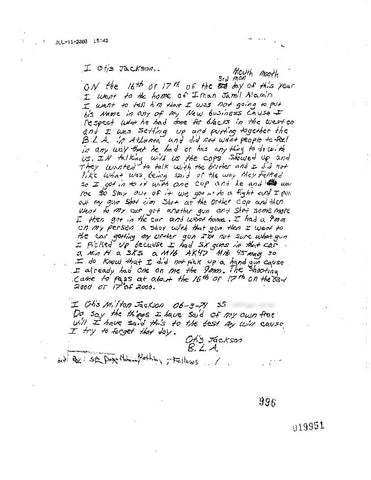 JUL-11-2000 15:42
I Otis Jackson..
Mouth month
3rd mon
ON the 16th or 17th of the day of this year
I want to the home of Iman Jamil Alamin
I want to tell him that I was not going to put
his Name in any of my New business cause I
respect what he had done for blacks in the west on
and I was Setting up and putting together the
B.L.A in Atlanta and did not want people to feel
in any way that he had or has any thing to do with
us. IN talking with us the cops showed up and
They wanted to talk with the brother and I did not
like what was being said or the way they
so I got in to it with one cop and he and
me to stay out of it we got into a fight and I put
out my gun shot him Shot at the other cop and then
went to my car got another gun and shot some more
I then got in the car and want home. I had a 9mm
on my person a shoy wild that gun then I want to
the car getting my other gun I'm not sure what gun
I picked up because I had six guns in that car
a Mini 14 a SKS a M16 AK47 M16 45 mag so
I do know that I did not pick up a hand gun cause
I already had one on me the 9mm. The shooting
came to pass at about the 16th or 17th on the
2000 or 17 of 2000.
I Otis Milton Jackson 06-3-71 SS
Do say the things I have said of my own free
will I have said this to the best my will cause
I try to forget that day.
Otis Jackson
B.L.A.
Fellows
996
019951